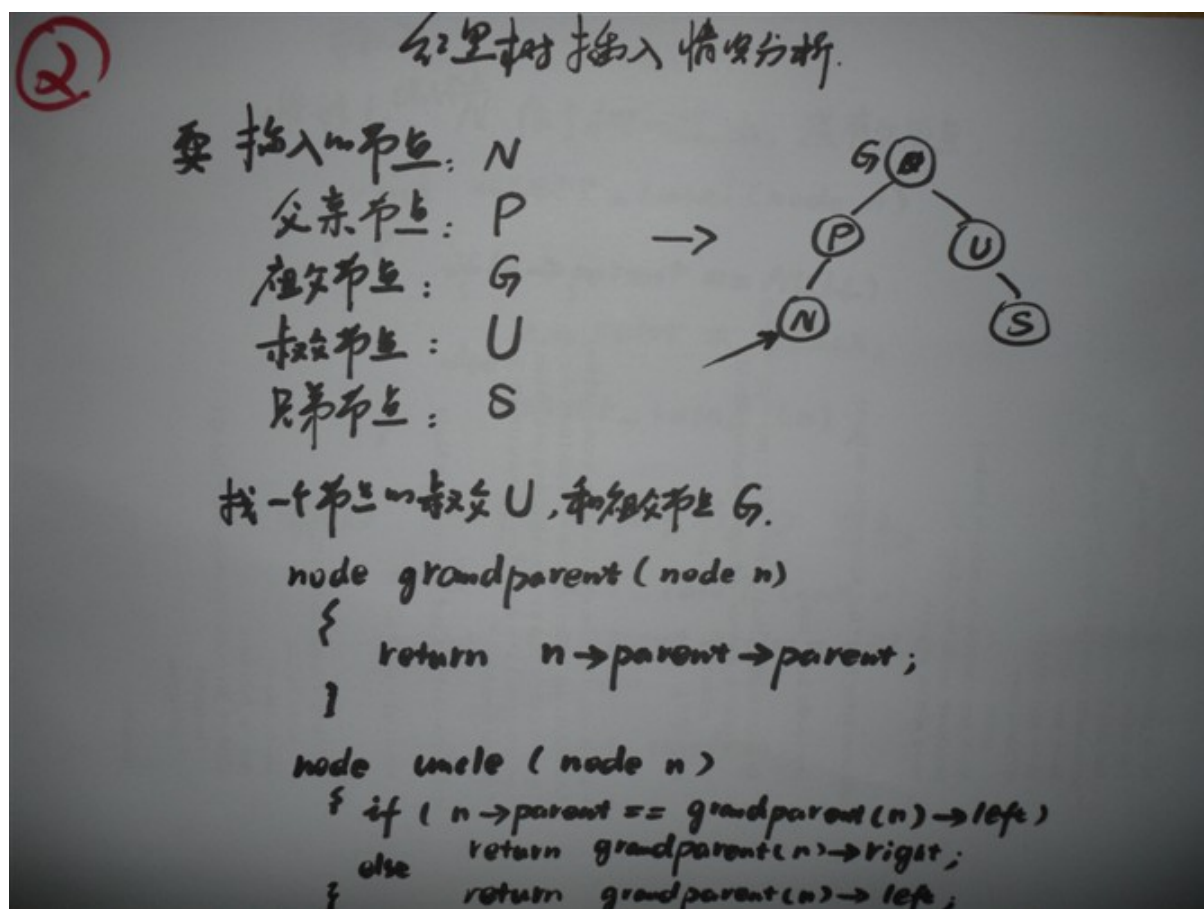 ②
红黑树插入情况分析.
要插入的节点: N
父亲节点: P
祖父节点: G
叔父节点: U
兄弟节点: S
→
G
P
U
N
S
找一个节点的叔父U,和祖父节点G.
node grandparent(node n)
{
return n→parent→parent;
}
node uncle (node n)
{ if ( n→parent == grandparent(n)→left)
return grandparent(n)→right;
else
} return grandparent(n)→left;